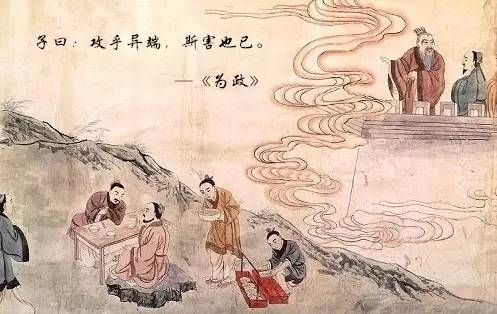 子曰：攻乎异端，斯害也已。
—《为政》